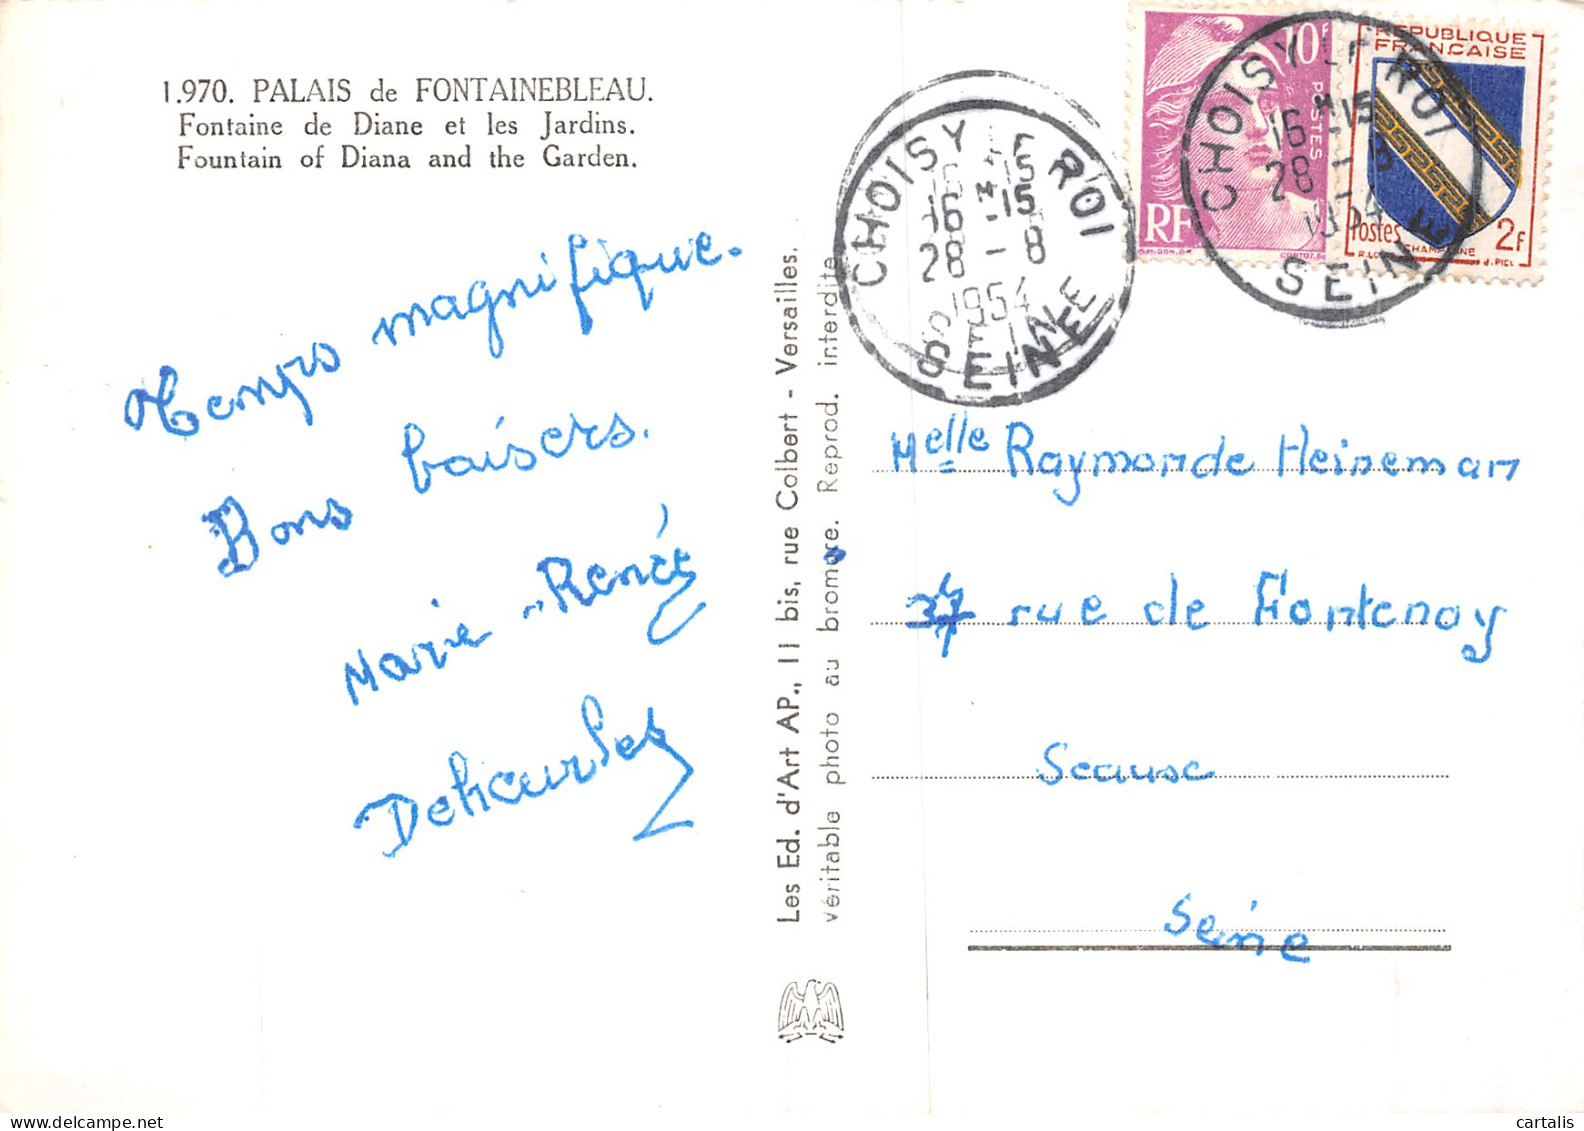 1.970. PALAIS de FONTAINEBLEAU.
Fontaine de Diane et les Jardins.
Fountain of Diana and the Garden.
Temps magnifique.
Bons baisers.
Marie-Renée
Les Ed. d'Art AP., 11 bis, rue Colbert - Versailles.
véritable photo au bromure. Reprod. interdite
CHOISY LE ROI
16 H 15
28 - 8
1954
SEINE
10F
POSTES
RF
GANDON.DEL
CORTOT.SC
REPUBLIQUE
FRANCAISE
Postes
2F
CHAMPAGNE
J. PIEL
CHOISY LE ROI
16 H 15
28 - 8
SEINE
Melle Raymonde Heineman
rue de Fontenoy
Seine
cartalis